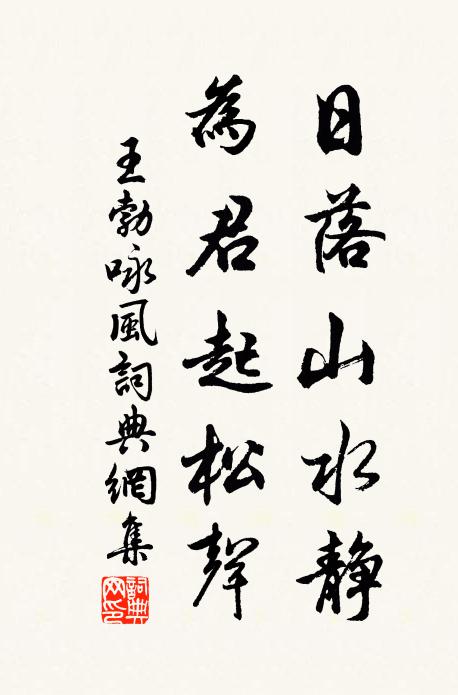 日落山水静
為君起松聲
王勃咏風詞典網集
詞典网印